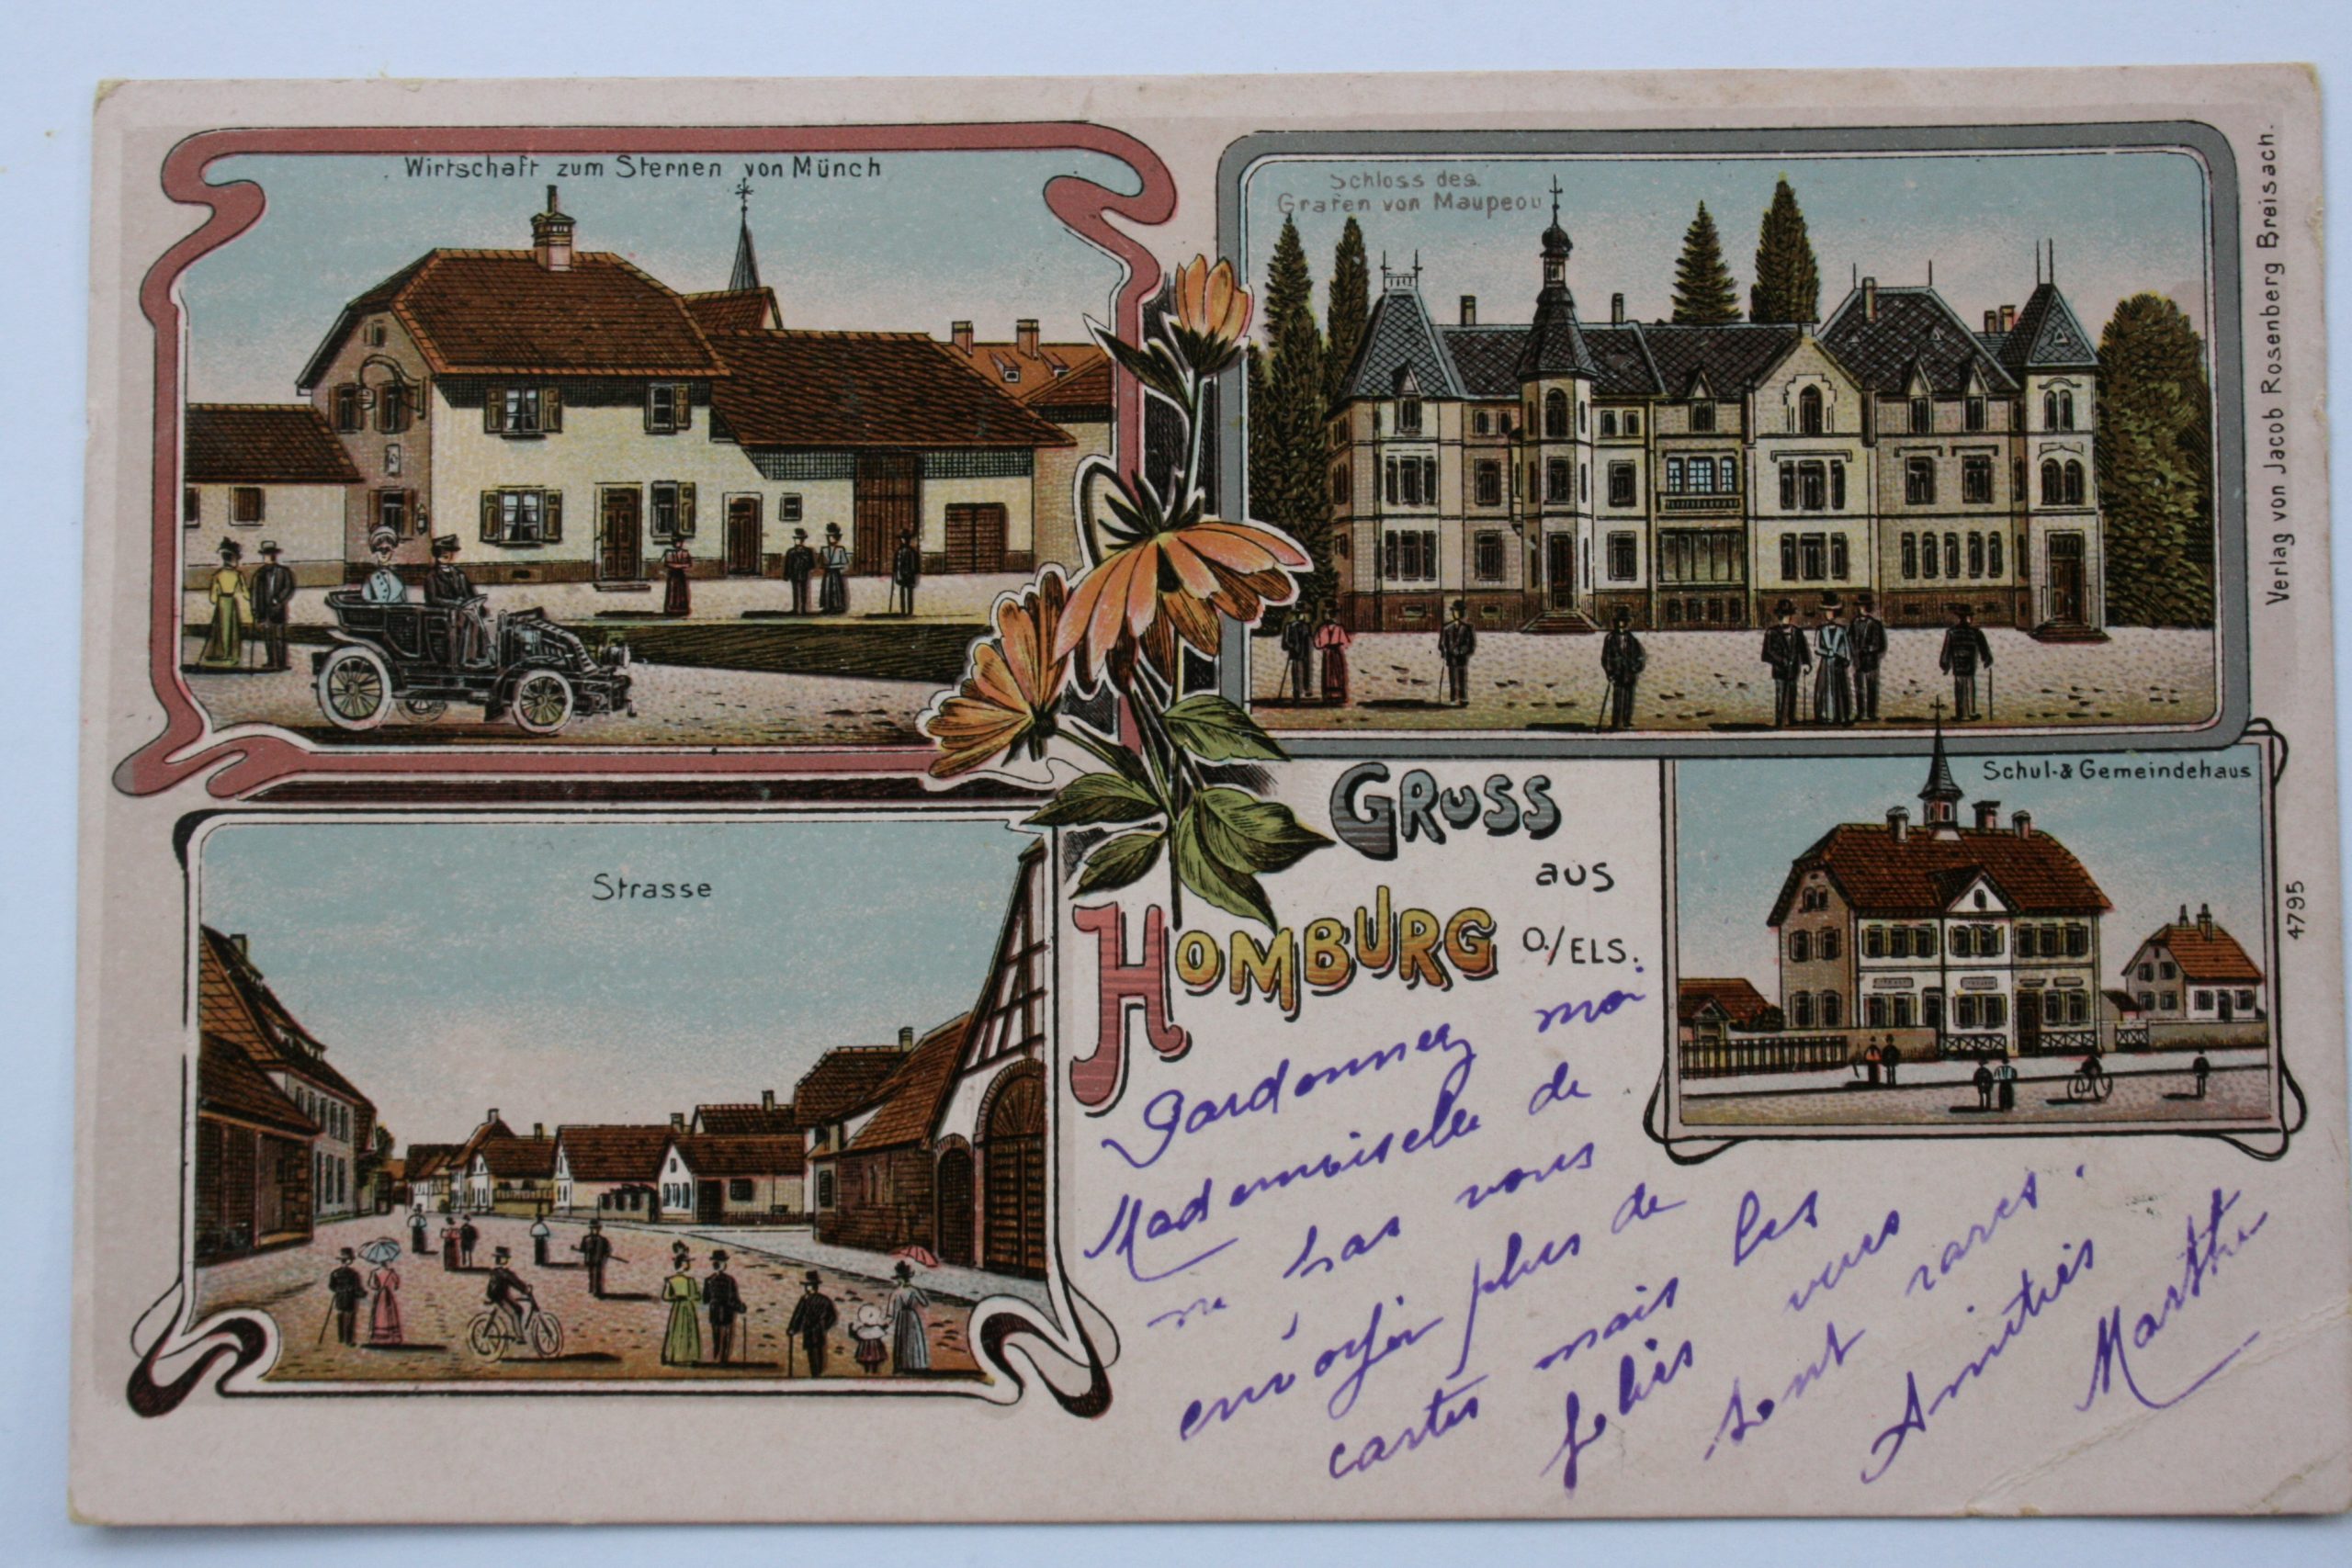 Wirtschaft zum Sternen von Münch
Schloss des
Grafen von Maupeou
Verlag von Jacob Rosenberg Breisach.
Strasse
GRUSS
aus
HOMBURG O./ELS.
Schul- & Gemeindehaus
4795
Pardonnez moi
Mademoiselle de
ne pas vous
envoyer plus de
cartes mais les
jolies vues
sont rares.
Amitiés
Marthe